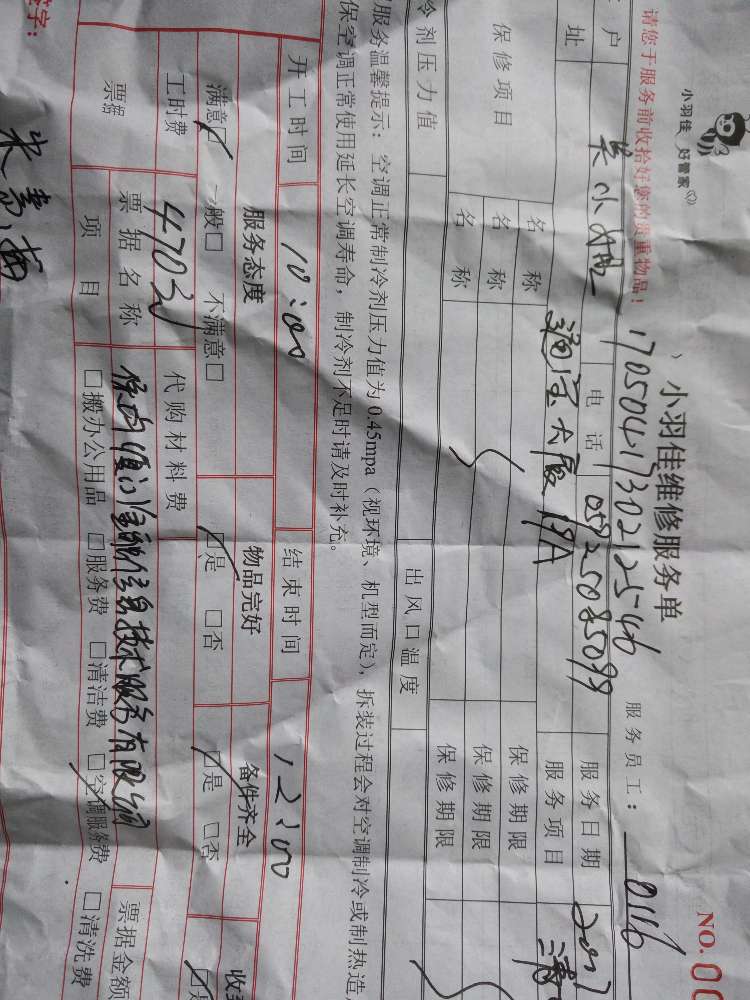 小羽佳 好管家
NO.00
小羽佳维修服务单
17050417302125546
服务员工： 0116
请您于服务前收拾好您的贵重物品！
户 吴小姐 电话 服务日期 2017
址 通宝大厦18A 服务项目
保修项目 名称 保修期限
名称 保修期限
名称 保修期限
冷剂压力值 出风口温度
服务温馨提示：空调正常制冷剂压力值为0.45mpa（视环境、机型而定），拆装过程会对空调制冷或制热造
保空调正常使用延长空调寿命，制冷剂不足时请及时补充。
开工时间 10:00 结束时间 12:00
服务态度 物品完好 备件齐全
满意□ 一般□ 不满意□ □是 □否 □是 □否
工时费 470元 代购材料费
票据 票据名称 票据金额
项目 □搬办公用品 □服务费 □清洁费 □空调服务费 □清洗费
签字：